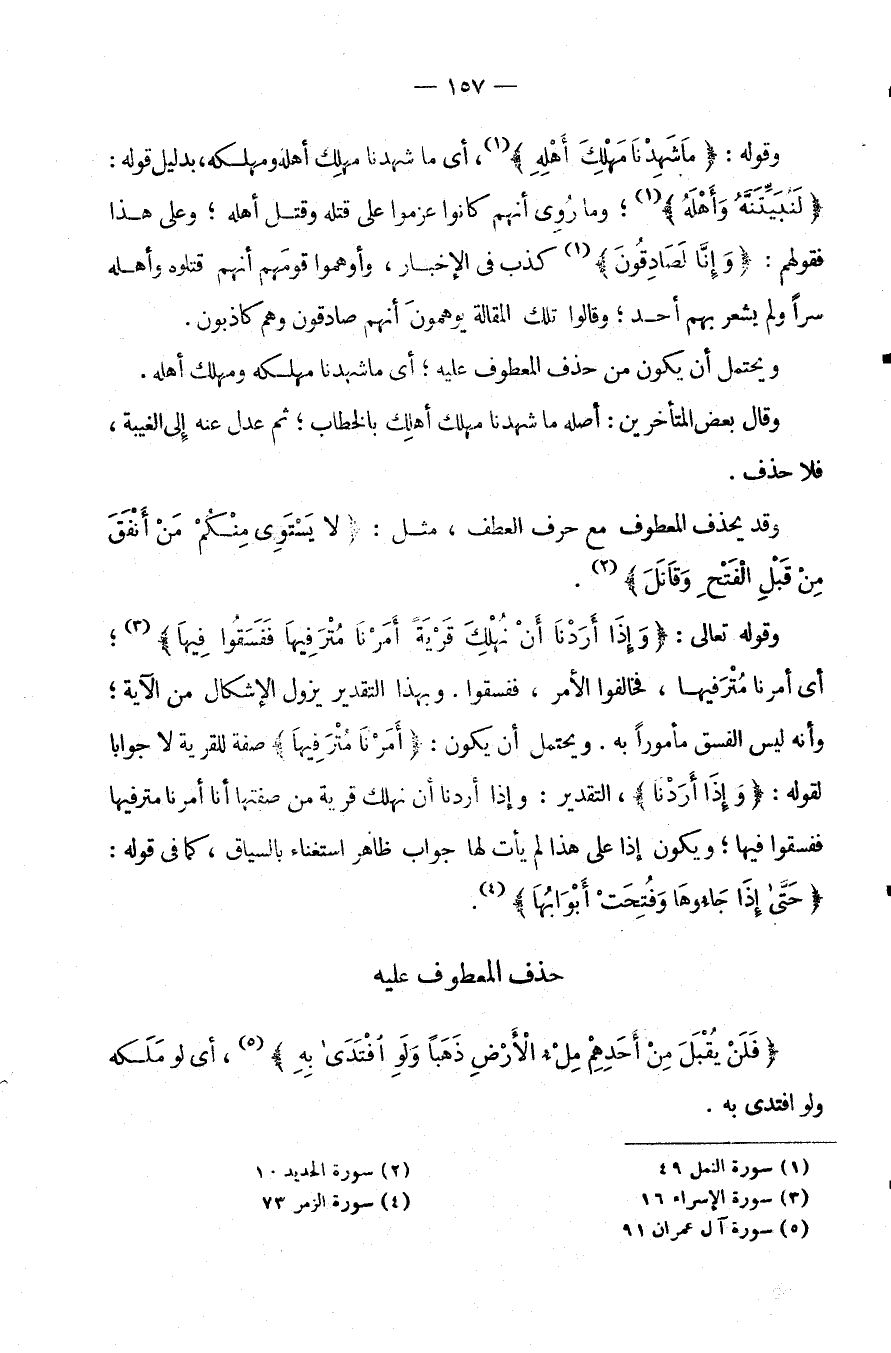 — ١٥٧ —
وقوله : ﴿ مَاشَهِدْنَا مَهْلِكَ أَهْلِهِ ﴾(١)، أى ما شهدنا مهلِك أهله ومهلـكه، بدليل قوله :
﴿ لَنُبَيِّتَنَّهُ وَأَهْلَهُ ﴾(١) ؛ وما رُوِى أنهم كانوا عزموا على قتله وقتـل أهله ؛ وعلى هـذا
فقولهم : ﴿ وَإِنَّا لَصَادِقُونَ ﴾(١) كذب فى الإخبـار ، وأوهموا قومَهم أنهم قتلوه وأهـله
سراً ولم يشعر بهم أحـد ؛ وقالوا تلك المقالة يوهمونَ أنهم صادقون وهم كاذبون .
ويحتمل أن يكون من حذف المعطوف عليه ؛ أى ماشهدنا مهلـكه ومهلك أهله .
وقال بعض المتأخرين : أصله ما شهدنا مهلك أهلك بالخطاب ؛ ثم عدل عنه إلى الغيبة ،
فلا حذف .
وقد يحذف المعطوف مع حرف العطف ، مثـل : ﴿ لا يَسْتَوِى مِنْـكُمْ مَنْ أَنْفَقَ
مِنْ قَبْلِ الْفَتْحِ وَقَاتَلَ ﴾(٢) .
وقوله تعالى : ﴿ وَإِذَا أَرَدْنَا أَنْ نُهْلِكَ قَرْيَةً أَمَرْنَا مُتْرَفِيهاَ فَفَسَقُوا فِيهاَ ﴾(٣) ؛
أى أمرنا مُتْرَفيهـا ، فخالفوا الأمر ، ففسقوا . وبهذا التقدير يزول الإشكال من الآية ؛
وأنه ليس الفسق مأموراً به . ويحتمل أن يكون : ﴿ أَمَرْنَا مُتْرَفِيهاَ ﴾ صفة للقرية لا جوابا
لقوله : ﴿ وَإِذَا أَرَدْنَا ﴾ ، التقدير : وإذا أردنا أن نهلك قرية من صفتها أنا أمرنا مترفيها
ففسقوا فيها ؛ ويكون إذا على هذا لم يأت لها جواب ظاهر استغناء بالسياق ، كما فى قوله :
﴿ حَتَّىٰ إِذَا جَاءوهَا وَفُتِحَتْ أَبْوَابُهَا ﴾(٤).
حذف المعطوف عليه
﴿ فَلَنْ يُقْبَلَ مِنْ أَحَدِهِمْ مِلْءُ الْأَرْضِ ذَهَباً وَلَوِ افْتَدَىٰ بِهِ ﴾(٥) ، أى لو مَلَـكه
ولو افتدى به .
(١) سورة النمل ٤٩
(٢) سورة الحديد ١٠
(٣) سورة الإسراء ١٦
(٤) سورة الزمر ٧٣
(٥) سورة آل عمران ٩١